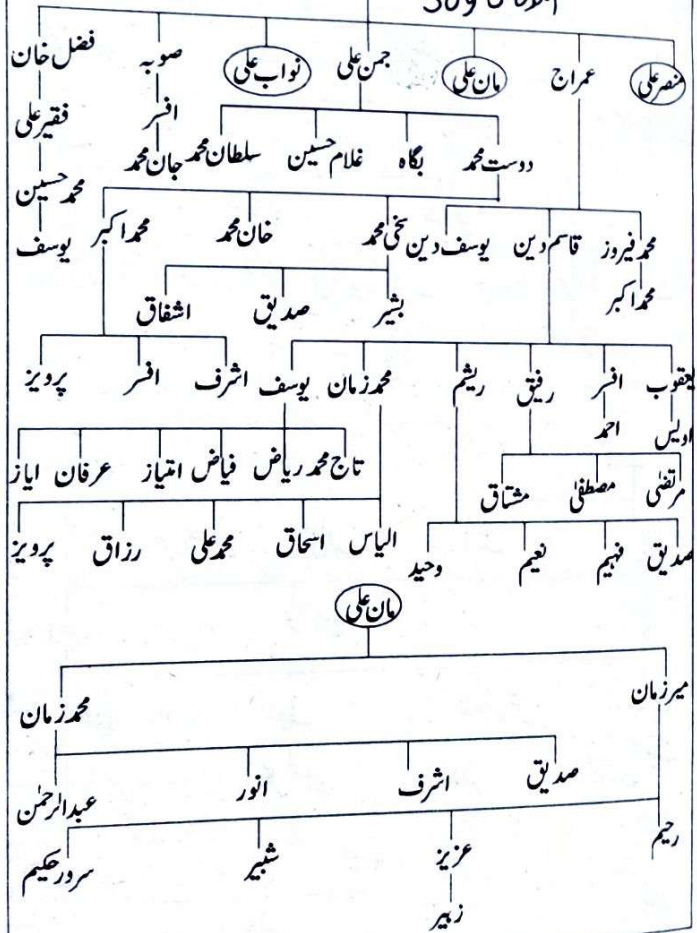 منصر علی عمراج مان علی جمن علی نواب علی صوبہ فضل خان
افسر فقیر علی
دوست محمد بگاہ غلام حسین سلطان محمد جان محمد
محمد حسین
محمد فیروز قاسم دین یوسف دین سخی محمد خان محمد محمد اکبر یوسف
محمد اکبر بشیر صدیق اشفاق
یعقوب افسر رفیق ریشم محمد زمان یوسف اشرف افسر پرویز
اویس احمد
تاج محمد ریاض فیاض امتیاز عرفان ایاز
مرتضیٰ مصطفیٰ مشتاق
صدیق فہیم نعیم وحید الیاس اسحاق محمد علی رزاق پرویز
مان علی
میر زمان محمد زمان
صدیق اشرف انور عبدالرحمٰن
رحیم عزیز شبیر سرور حکیم
زبیر